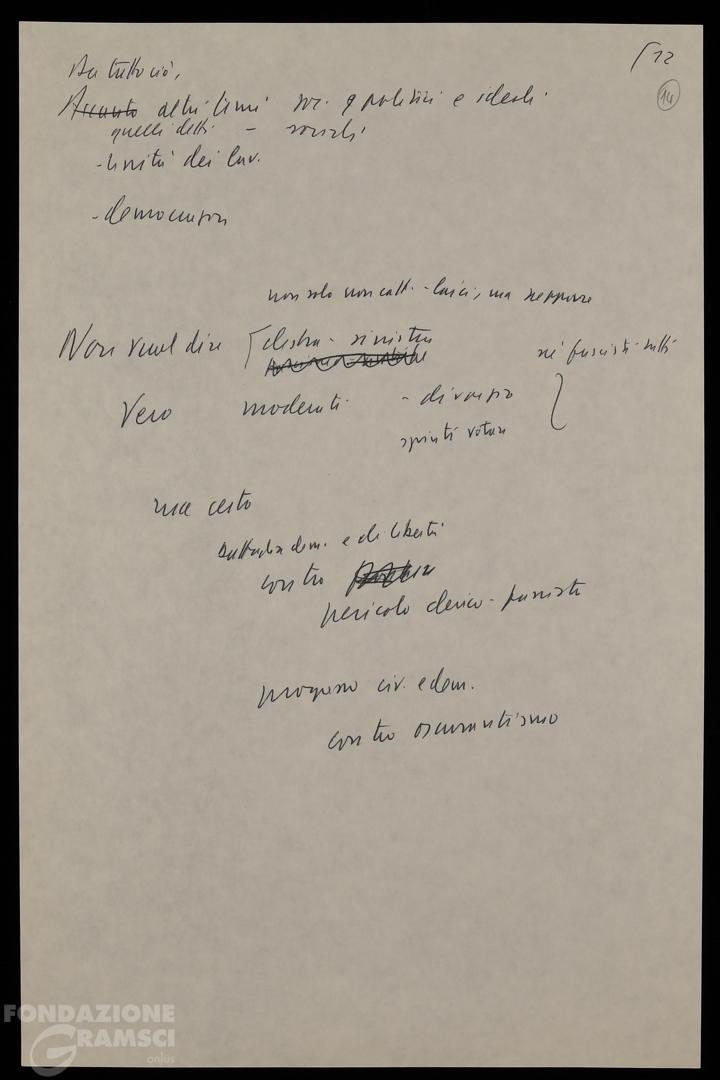 12
14
Da tutto ciò,
Accanto altri temi soc. e politici e ideali
quelli detti - sociali
- Unità dei lav.
- democrazia
non solo non catt. - laici, ma neppure
Non vuol dire destra - sinistra
né fascisti tutti
Vero moderati - divorzio
spinti votare
ma certo
battaglia dem. e di libertà
contro
pericolo clerico-fascista
progresso civ. e dem.
contro oscurantismo
FONDAZIONE
GRAMSCI
onlus